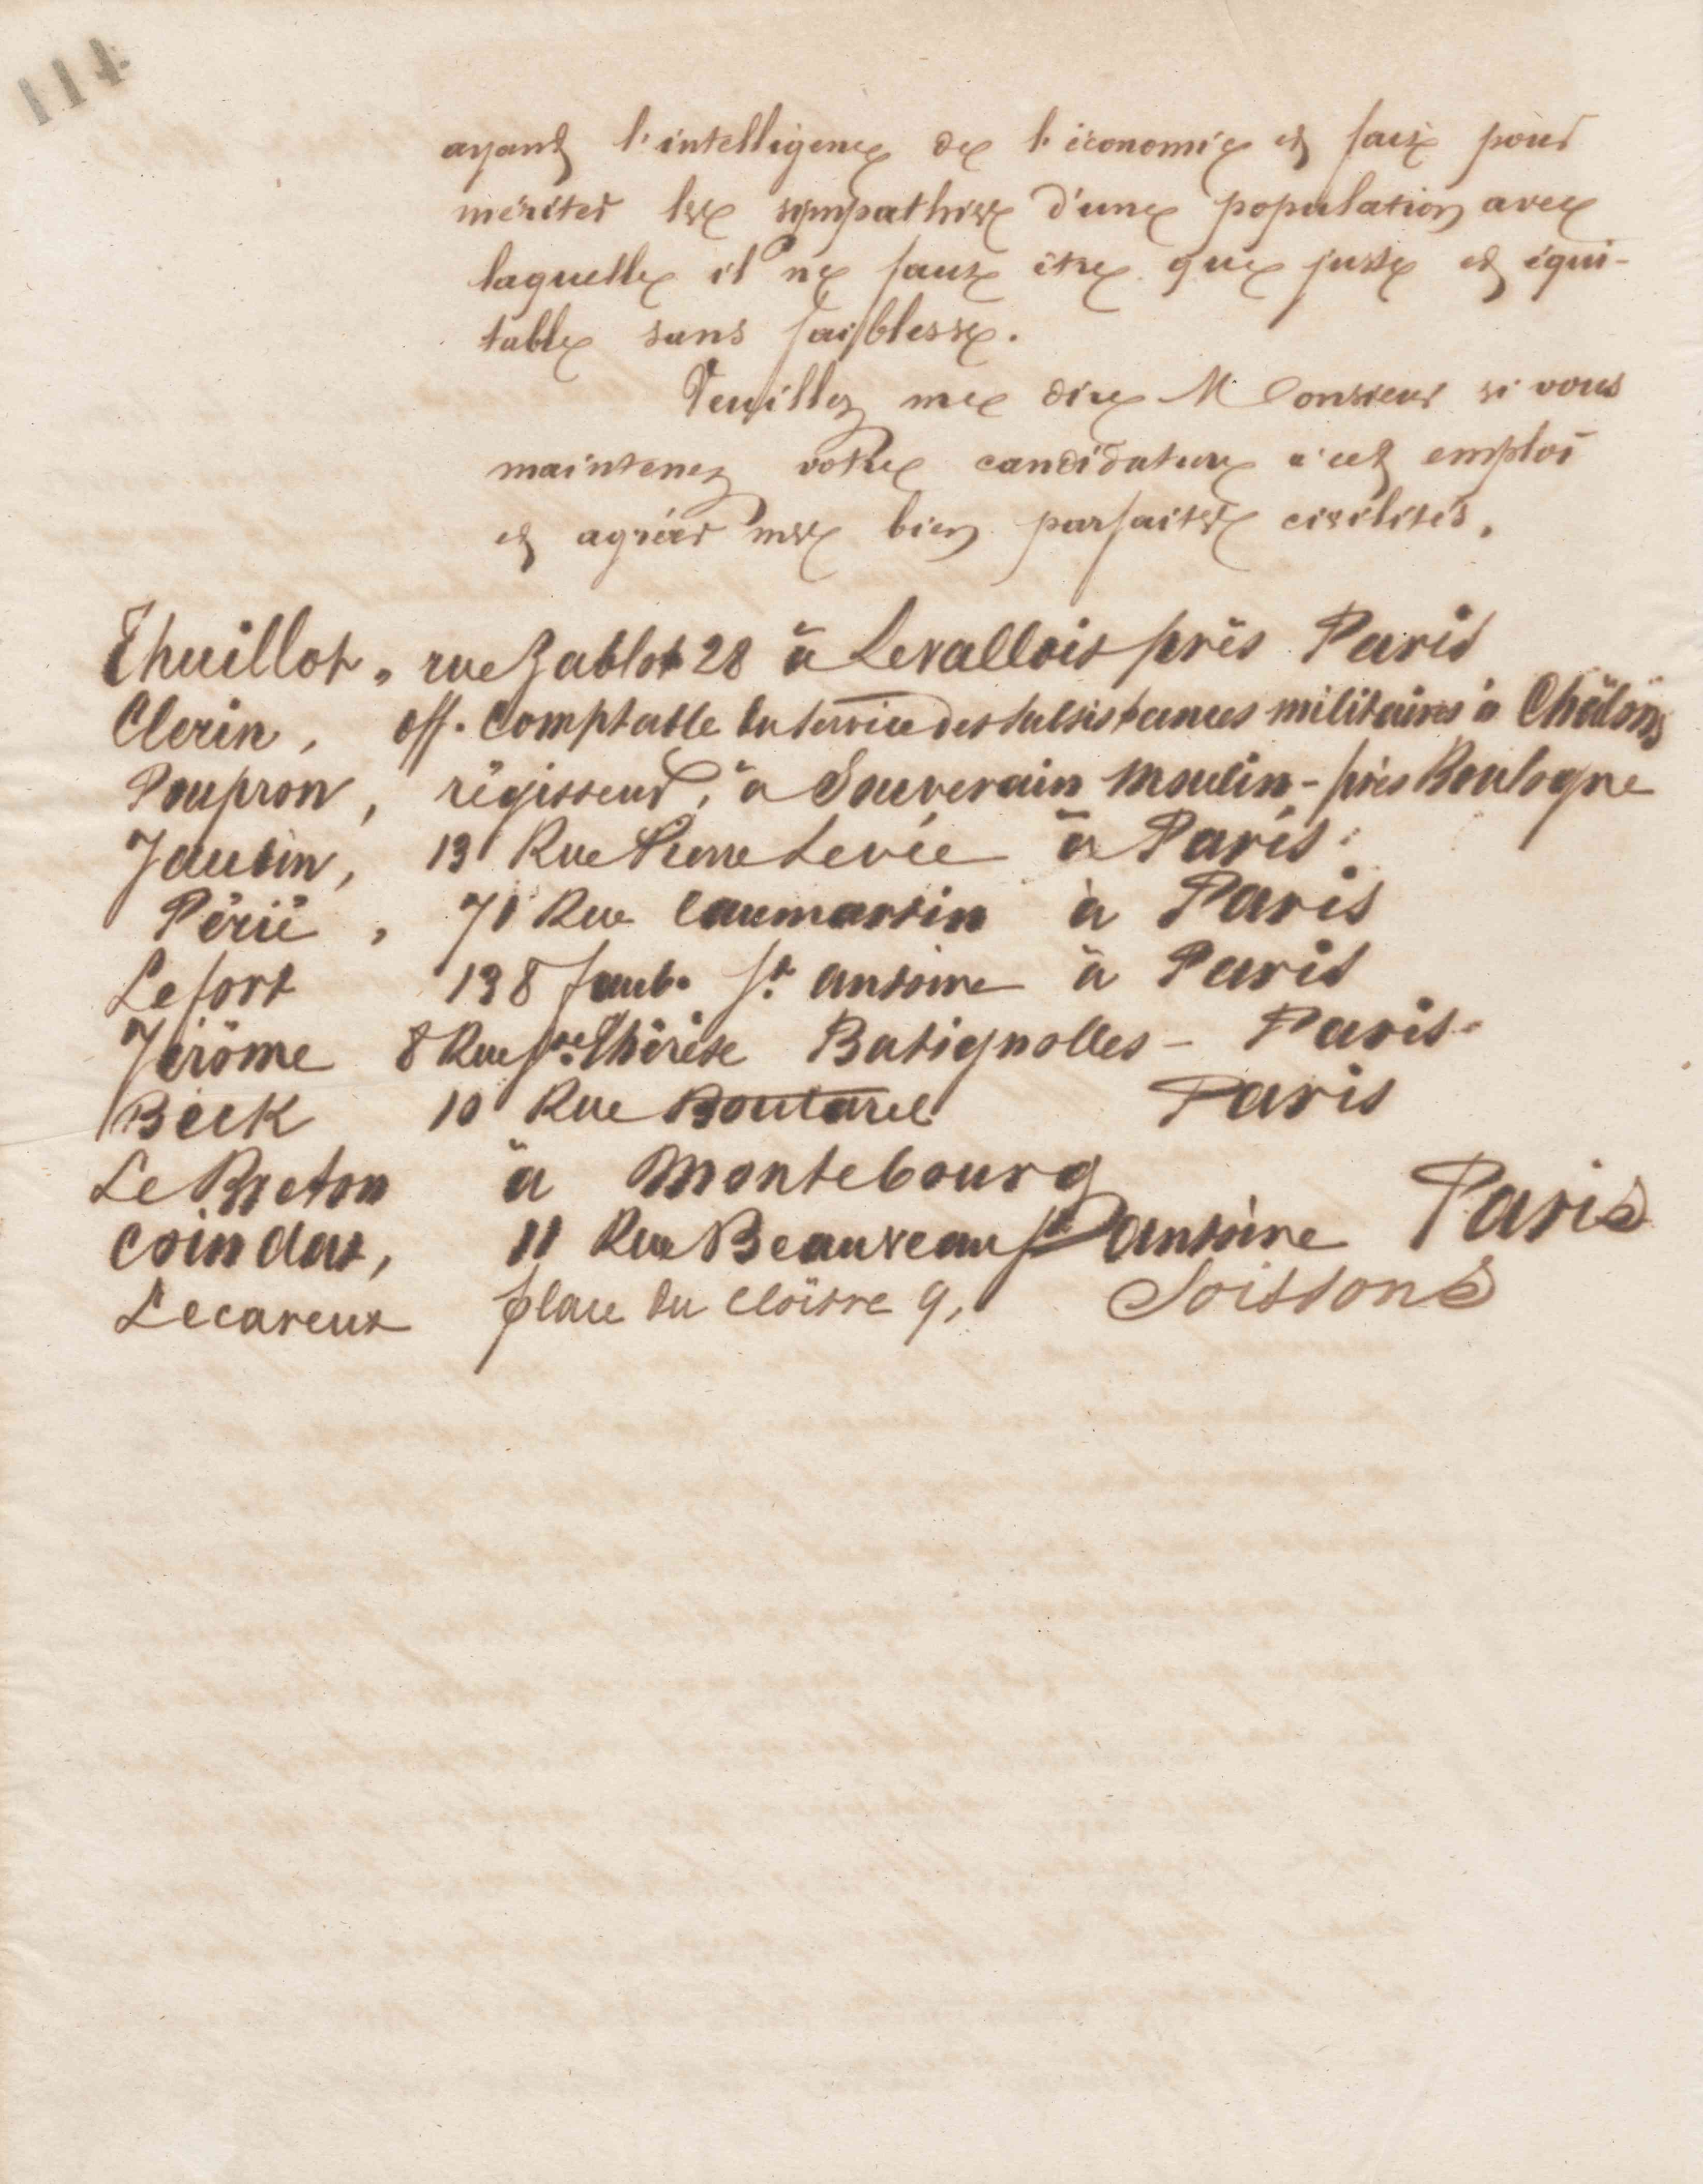 114
ayant l'intelligence de l'économie et faite pour
mériter les sympathies d'une population avec
laquelle il ne faut être que juste et équi-
table sans faiblesse.
Veuillez me dire Monsieur si vous
maintenez votre candidature à cet emploi
et agréer mes bien parfaites civilités.
Thuillot, rue Gablot 28 à Levallois près Paris
Clerin, off. comptable du service des subsistances militaires à Châlons
Poupron, régisseur, à Souverain Moulin - près Boulogne
Jautin, 13 Rue Pierre Levée à Paris.
Périé, 71 Rue Caumartin à Paris
Lefort 138 faub. St. Antoine à Paris
Jérôme 8 Rue Ste. Thérèse Batignolles - Paris.
Beck 10 Rue Boutarel Paris
Le Breton à Montebourg
Coindat, 11 Rue Beauveau St Antoine Paris
Lecareux place du Cloître 9, Soissons